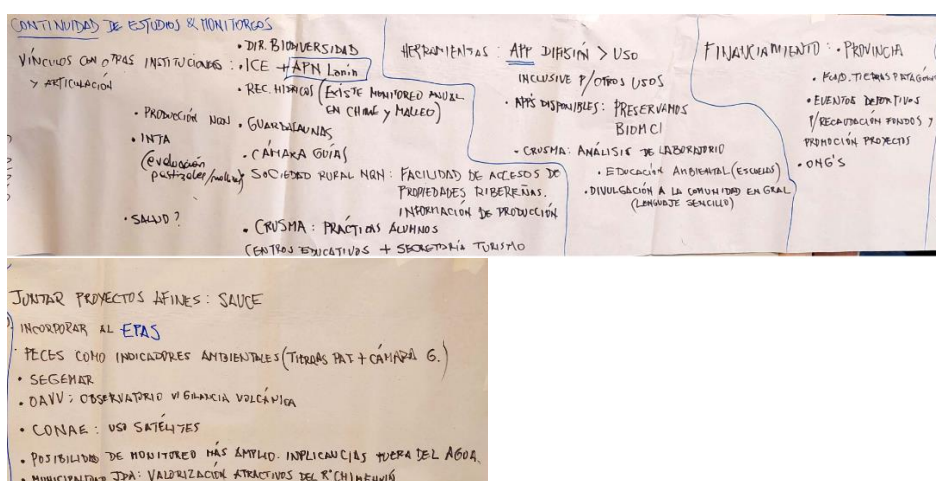 CONTINUIDAD DE ESTUDIOS & MONITOREOS
VÍNCULOS CON OTRAS INSTITUCIONES:
Y ARTICULACIÓN
• DIR. BIODIVERSIDAD
• ICE + APN Lanín
• REC. HIDRICOS (EXISTE MONITOREO ANUAL
EN CHIME y MALLEO)
• PRODUCCIÓN NQN
• GUARDAFAUNAS
• INTA
(evaluación
pastizales/mallines)
• CÁMARA GUÍAS
• SOCIEDAD RURAL NQN: FACILIDAD DE ACCESOS DE
PROPIEDADES RIBEREÑAS.
INFORMACIÓN DE PRODUCCIÓN
• SALUD?
• CRUSMA: PRÁCTICAS ALUMNOS
CENTROS EDUCATIVOS + SECRETARÍA TURISMO
HERRAMIENTAS: APP DIFISIÓN > USO
INCLUSIVE P/OTROS USOS
• APPS DISPONIBLES: PRESERVAMOS
BIOMCI
• CRUSMA: ANÁLISIS DE LABORATORIO
• EDUCACIÓN AMBIENTAL (ESCUELAS)
• DIVULGACIÓN A LA COMUNIDAD EN GRAL
(LENGUAJE SENCILLO)
FINANCIAMIENTO: • PROVINCIA
• FUND. TIERRAS PATAGÓN
• EVENTOS DEPORTIVOS
P/RECAUDACIÓN FONDOS y
PROMOCIÓN PROYECTOS
• ONG'S
JUNTAR PROYECTOS AFINES: SAUCE
INCORPORAR AL EPAS
• PECES COMO INDICADORES AMBIENTALES (TIERRAS PAT + CÁMARA G.)
• SEGEMAR
• OAVV: OBSERVATORIO VIGILANCIA VOLCÁNICA
• CONAE: USO SATÉLITES
• POSIBILIDAD DE MONITOREO MÁS AMPLIO. INPLICANCIAS FUERA DEL AGUA.
• MUNICIPALIDAD JDA: VALORIZACIÓN ATRACTIVOS DEL Rº CHIMEHUIN